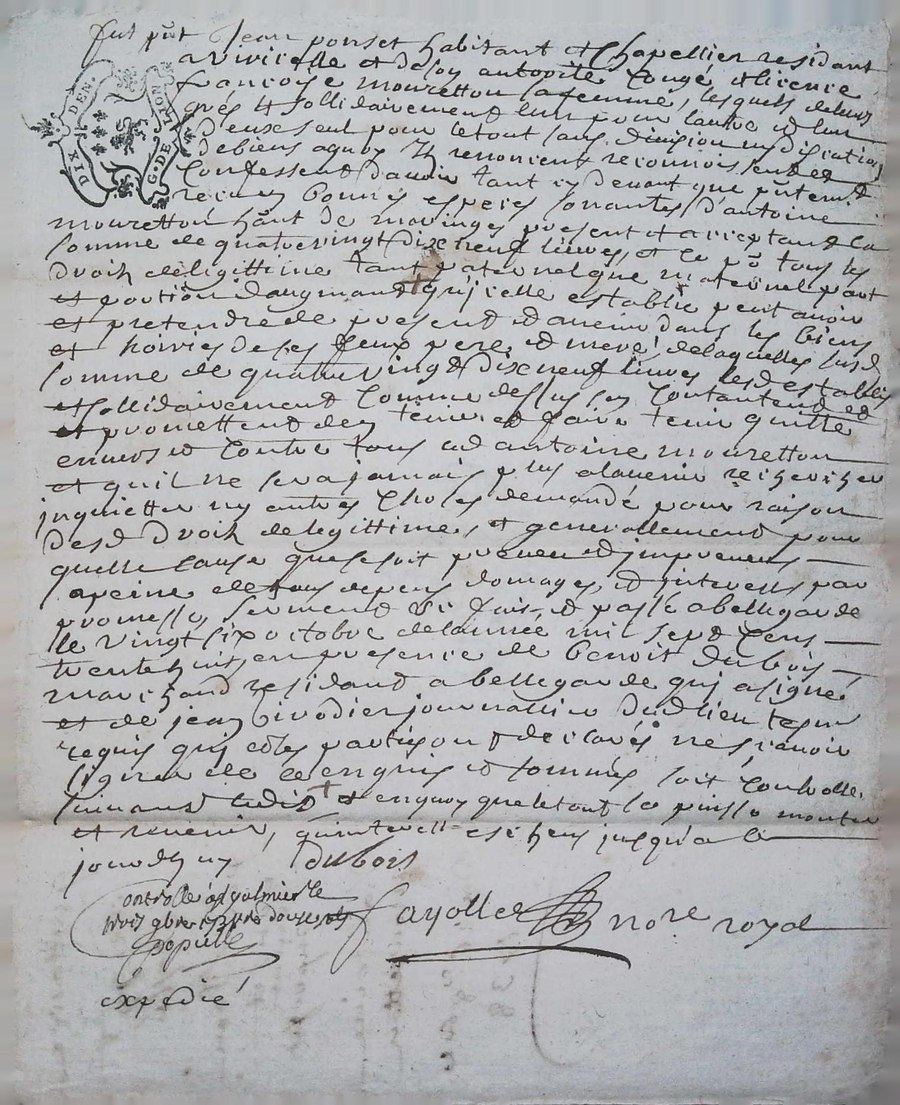 fut pn̄t Jean ponset habitant et Chapellier residant
a Viricelle et de son autorité Congé et licence
francoise mouretton sa femme, lesquels de leurs
grés et sollidairement lun pour lautre et lun
d'eux seul pour le tout sans division ny discution
de biens a quoy ilz renoncent reconnoissent et
Confessent d'avoir tant cy devant que pn̄tement
receu en bonnes especes sonnantes d'antoine
mouretton hān̄t de maringes present et acceptant la
somme de quatrevingt dix neuf livres, et ce po tous les
droits de legittime tant paternel que maternel part
et portion d'augmant qu'icelle establie peut avoir
et pretendre de present et a venir dans les biens
et hoiries de ses feux pere et mere, de laquelle susd
somme de quatrevingt dix neuf livres lesd establis
sollidairement Comme dessus son Contantent et
et promettent den tenir et faire tenir quitte
envers et Contre tous led antoine mouretton
et quil ne sera jamais plus a lavenir recherché
inquietter ny autres Choses demandé pour raison
desd droits de legittime, et generallement pour
quelle cause que ce soit preveue et impreveue
a peine de tous depens domages, et interests par
promesse, serment &c fait et passé a bellegarde
le vingt six octobre de lannée mil sept Cens
trente huit, en presence de benoit dubois
marchand residant a bellegarde qui a signé
et de jean Girodier journallier dud lieu tesm
requis qui et les parties ont declarés ne scavoir
signer de ce enquis et sommés soit Controllé
suivant ledit et en quoy que le tout se puisse monter
et revenir, jusqu'a ce
jourdhuy dubois
DIX DEN.
G. DE LYON
Controllé a St galmier le
trois 9bre 1738 Rd douze sols
populle
fayolle nore royal
expedié